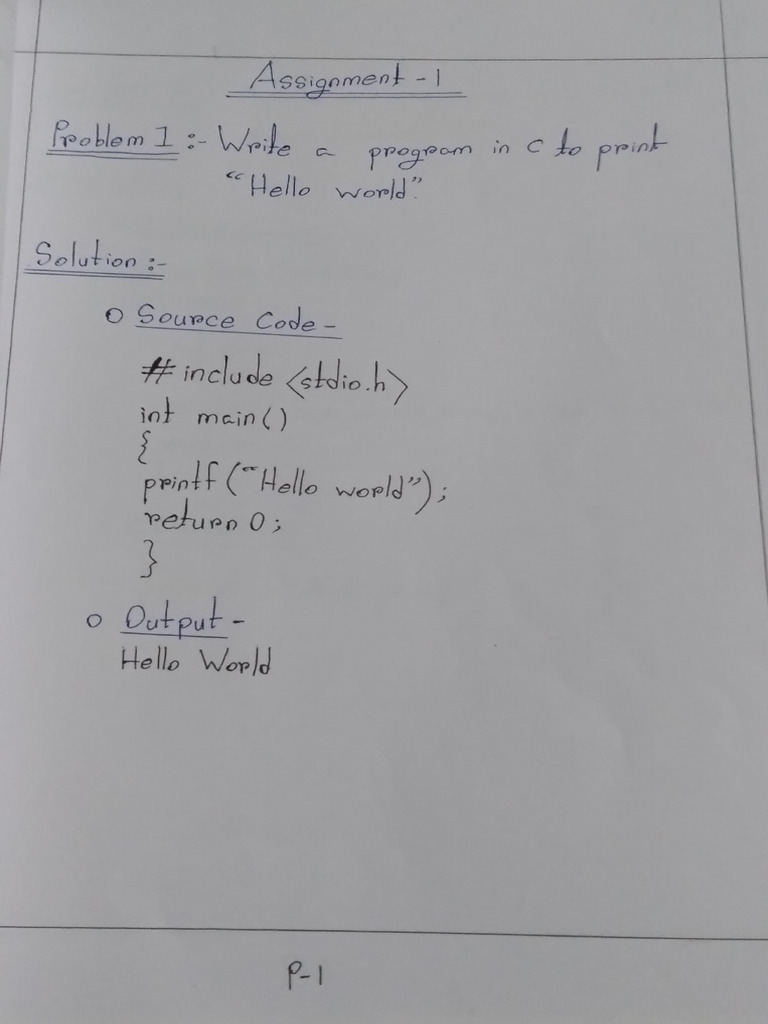 Assignment - 1
Problem 1 :- Write a program in C to print
"Hello world".
Solution :-
o Source Code -
# include <stdio.h>
int main()
{
printf ("Hello world");
return 0;
}
o Output -
Hello World
P-1